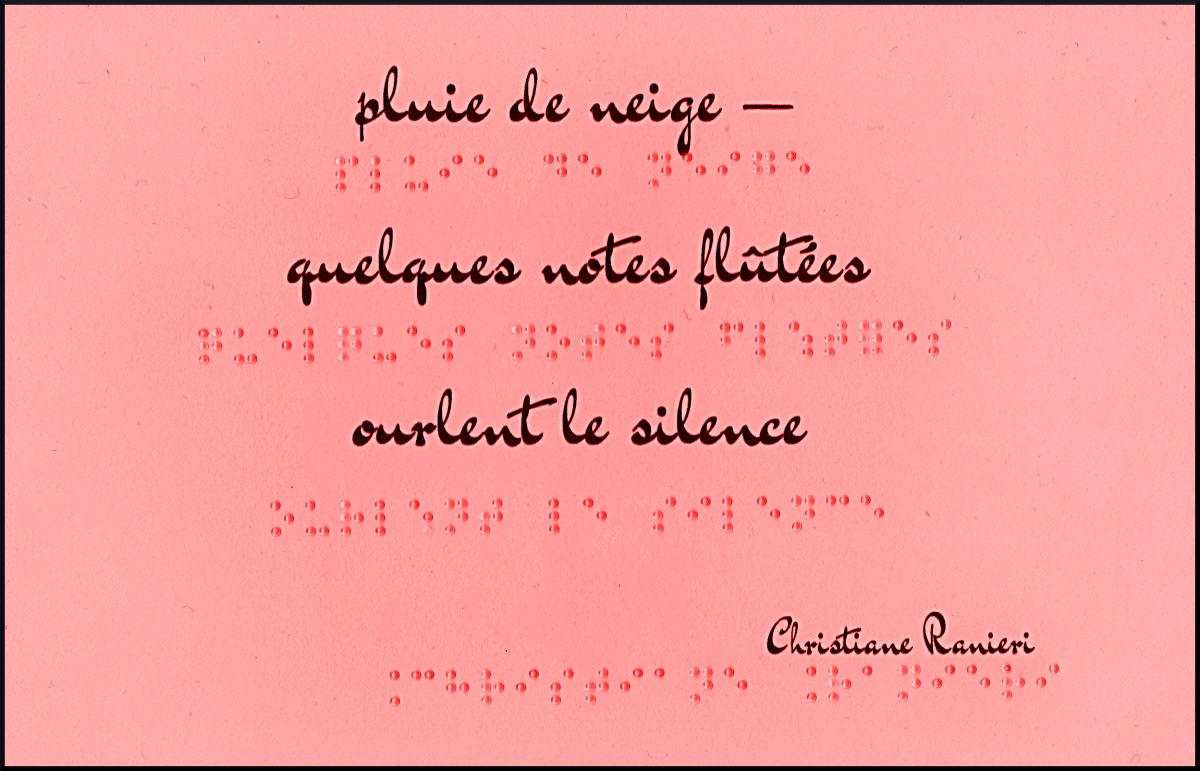 pluie de neige —
⠏⠇⠥⠊⠑ ⠙⠑ ⠝⠑⠊⠛⠑
quelques notes flûtées
⠟⠥⠑⠇⠟⠥⠑⠎ ⠝⠕⠞⠑⠎ ⠋⠇⠱⠞⠿⠑⠎
ourlent le silence
⠕⠥⠗⠇⠑⠝⠞ ⠇⠑ ⠎⠊⠇⠑⠝⠉⠑
Christiane Ranieri
⠨⠉⠓⠗⠊⠎⠞⠊⠁⠝⠑ ⠨⠗⠁⠝⠊⠑⠗⠊